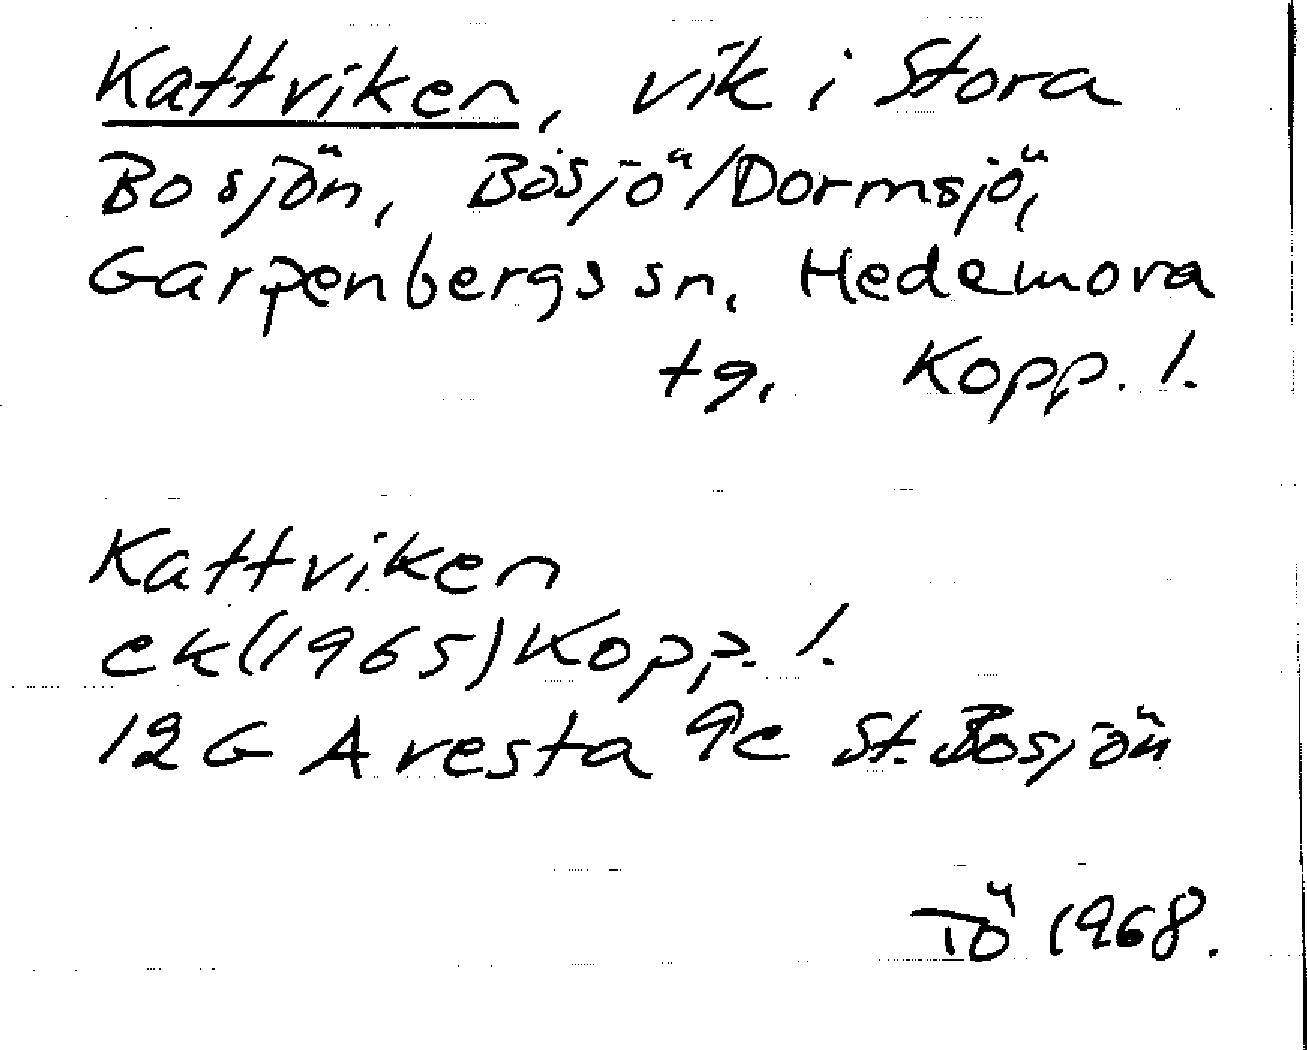 Kattviken, vik i Stora
Bosjön, Bosjö/Dormsjö,
Garpenbergs sn, Hedemora
tg, Kopp. l.
Kattviken
ek(1965) Kopp. l.
12G Avesta 9c St. Bosjön
TÖ 1968.